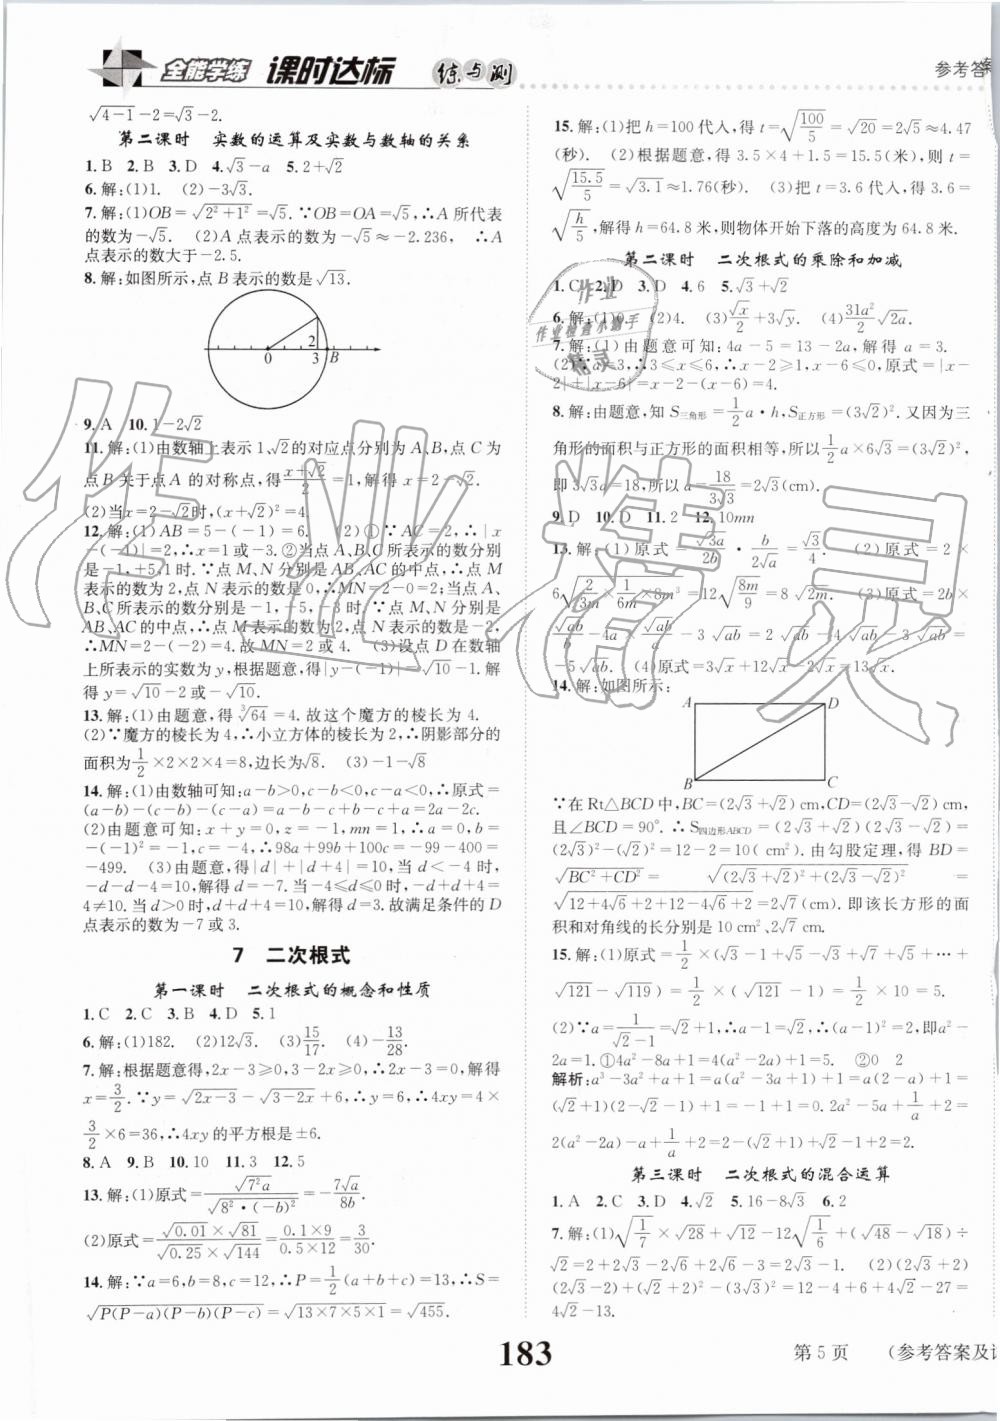 全能学练 课时达标 练与测
参考答案
√(4-1)-2=√3-2.
第二课时 实数的运算及实数与数轴的关系
1.B 2.B 3.D 4.√3-a 5.2+√2
6.解:(1)1. (2)-3√3.
7.解:(1)OB=√(2²+1²)=√5.∵OB=OA=√5,∴A所代表
的数为-√5. (2)A点表示的数为-√5≈-2.236, ∴A
点表示的数大于-2.5.
8.解:如图所示,点B表示的数是√13.
2
0 3 B
9.A 10.1-2√2
11.解:(1)由数轴上表示1,√2的对应点分别为A、B,点C为
点B关于点A的对称点,得(x+√2)/2=1,解得x=2-√2.
(2)当x=2-√2时,(x+√2)²=4.
12.解:(1)AB=5-(-1)=6. (2)①∵AC=2,∴|x
-(-1)|=2,∴x=1或-3.②当点A、B、C所表示的数分别
是-1,+5,1时.∵点M、N分别是AB、AC的中点,∴点M
表示的数为2,点N表示的数是0,∴MN=2-0=2;当点A、
B、C所表示的数分别是-1,+5,-3时.∵点M、N分别是
AB、AC的中点,∴点M表示的数为2,点N表示的数是-2,
∴MN=2-(-2)=4.故MN=2或4. (3)设点D在数轴
上所表示的实数为y,根据题意,得|y-(-1)|=√10-1,解
得y=√10-2或-√10.
13.解:(1)由题意,得³√64=4.故这个魔方的棱长为4.
(2)∵魔方的棱长为4,∴小立方体的棱长为2,∴阴影部分的
面积为1/2×2×2×4=8,边长为√8. (3)-1-√8
14.解:(1)由数轴可知:a-b>0,c-b<0,c-a<0,∴原式=
(a-b)-(c-b)-(c-a)=a-b-c+b-c+a=2a-2c.
(2)由题意可知:x+y=0,z=-1,mn=1,∴a=0,b=
-(-1)²=-1,c=-4,∴98a+99b+100c=-99-400=
-499. (3)由题意,得|d|+|d+4|=10. 当d<-4时,
-d-d-4=10,解得d=-7.当-4≤d≤0时,-d+d+4=
4≠10.当d>0时,d+d+4=10,解得d=3.故满足条件的D
点表示的数为-7或3.
7 二次根式
第一课时 二次根式的概念和性质
1.C 2.C 3.B 4.D 5.1
6.解:(1)182. (2)12√3. (3)15/17. (4)-13/28.
7.解:根据题意得,2x-3≥0,3-2x≥0,解得
x=3/2.∵y=√(2x-3)-√(3-2x)+6,∴y=6,∴4xy=4×
3/2×6=36,∴4xy的平方根是±6.
8.A 9.B 10.10 11.3 12.5
13.解:(1)原式=√(7²a)/√(8²·(-b)²)=-7√a/8b.
(2)原式=(√0.01×√81)/(√0.25×√144)=(0.1×9)/(0.5×12)=3/30.
14.解:∵a=6,b=8,c=12,∴P=1/2(a+b+c)=13,∴S=
√(P(P-a)(P-b)(P-c))=√(13×7×5×1)=√455.
15.解:(1)把h=100代入,得t=√(100/5)=√20=2√5≈4.47
(秒). (2)根据题意,得3.5×4+1.5=15.5(米),则t=
√(15.5/5)=√3.1≈1.76(秒). (3)把t=3.6代入,得3.6=
√(h/5),解得h=64.8米,则物体开始下落的高度为64.8米.
第二课时 二次根式的乘除和加减
1.C 2.D 3.D 4.6 5.√3+√2
6.解:(1)9. (2)4. (3)√x/2+3√y. (4)31a²/2√2a.
7.解:(1)由题意可知:4a-5=13-2a,解得a=3.
(2)∵a=3,∴3≤x≤6,∴x-2≥1,x-6≤0,原式=|x-
2|+|x-6|=x-2-x+6=4.
8.解:由题意,知S三角形=1/2a·h,S正方形=(3√2)².又因为三
角形的面积与正方形的面积相等,所以1/2a×6√3=(3√2)²,
即3√3a=18,所以a=18/3√3=2√3(cm).
9.D 10.D 11.2 12.10mn
13.解:(1)原式=√3a/2b·b/2√a=√3/4. (2)原式=2×
6√(2/3m×1/6m×8m³)=12√(8m/9)=8√2m. (3)原式=2b×
√ab/b-4a×√ab/a-3√ab=2√ab-4√ab-3√ab=
-5√ab. (4)原式=3√x+12√x-2√x=13√x.
14.解:如图所示:
A D
B C
∵在Rt△BCD中,BC=(2√3+√2)cm,CD=(2√3-√2)cm,
且∠BCD=90°.∴S四边形ABCD=(2√3+√2)(2√3-√2)=
(2√3)²-(√2)²=12-2=10(cm²).由勾股定理,得BD=
√(BC²+CD²)=√((2√3+√2)²+(2√3-√2)²)=
√(12+4√6+2+12-4√6+2)=2√7(cm).即该长方形的面
积和对角线的长分别是10 cm²、2√7 cm.
15.解:(1)原式=1/2×(√3-1+√5-√3+√7+√5+…+
√121-√119)=1/2×(√121-1)=1/2×10=5.
(2)∵a=1/(√2-1)=√2+1,∴a-1=√2,∴(a-1)²=2,即a²-
2a=1.①4a²-8a+1=4(a²-2a)+1=5. ②0 2
解析:a³-3a²+a+1=a(a²-3a+1)+1=a(2-a)+1=
(√2+1)(2-√2-1)+1=-1+1=0. 2a²-5a+1/a+2=
2(a²-2a)-a+1/a+2=2-(√2+1)+√2-1+2=2.
第三课时 二次根式的混合运算
1.A 2.C 3.D 4.√2 5.16-8√3 6.2
7.解:(1)√(1/7)×√28+√12-12√(1/6)+(√48-√18)÷
√2=2+2√3-2√6+2√6-3=2√3-1. (2)(2√3+2)
(2√3-2)+(√2+2)²-(3√3)²=12-4+6+4√2-27=
4√2-13.
183
第5页
(参考答案及
作业
作业检查小助手
精灵
作业精灵